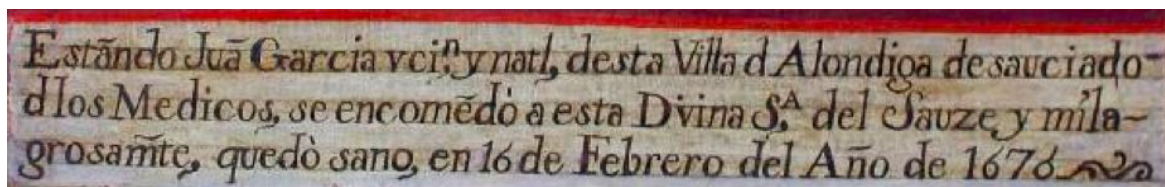 Estãndo Juã Garcia vci.ⁿ y natl, desta Villa d Alondiga desauciado-
d los Medicos, se encomẽdò a esta Divina S.ᴬ del Sauze, y mila~
grosam̃te, quedò sano, en 16 de Febrero del Año de 1676